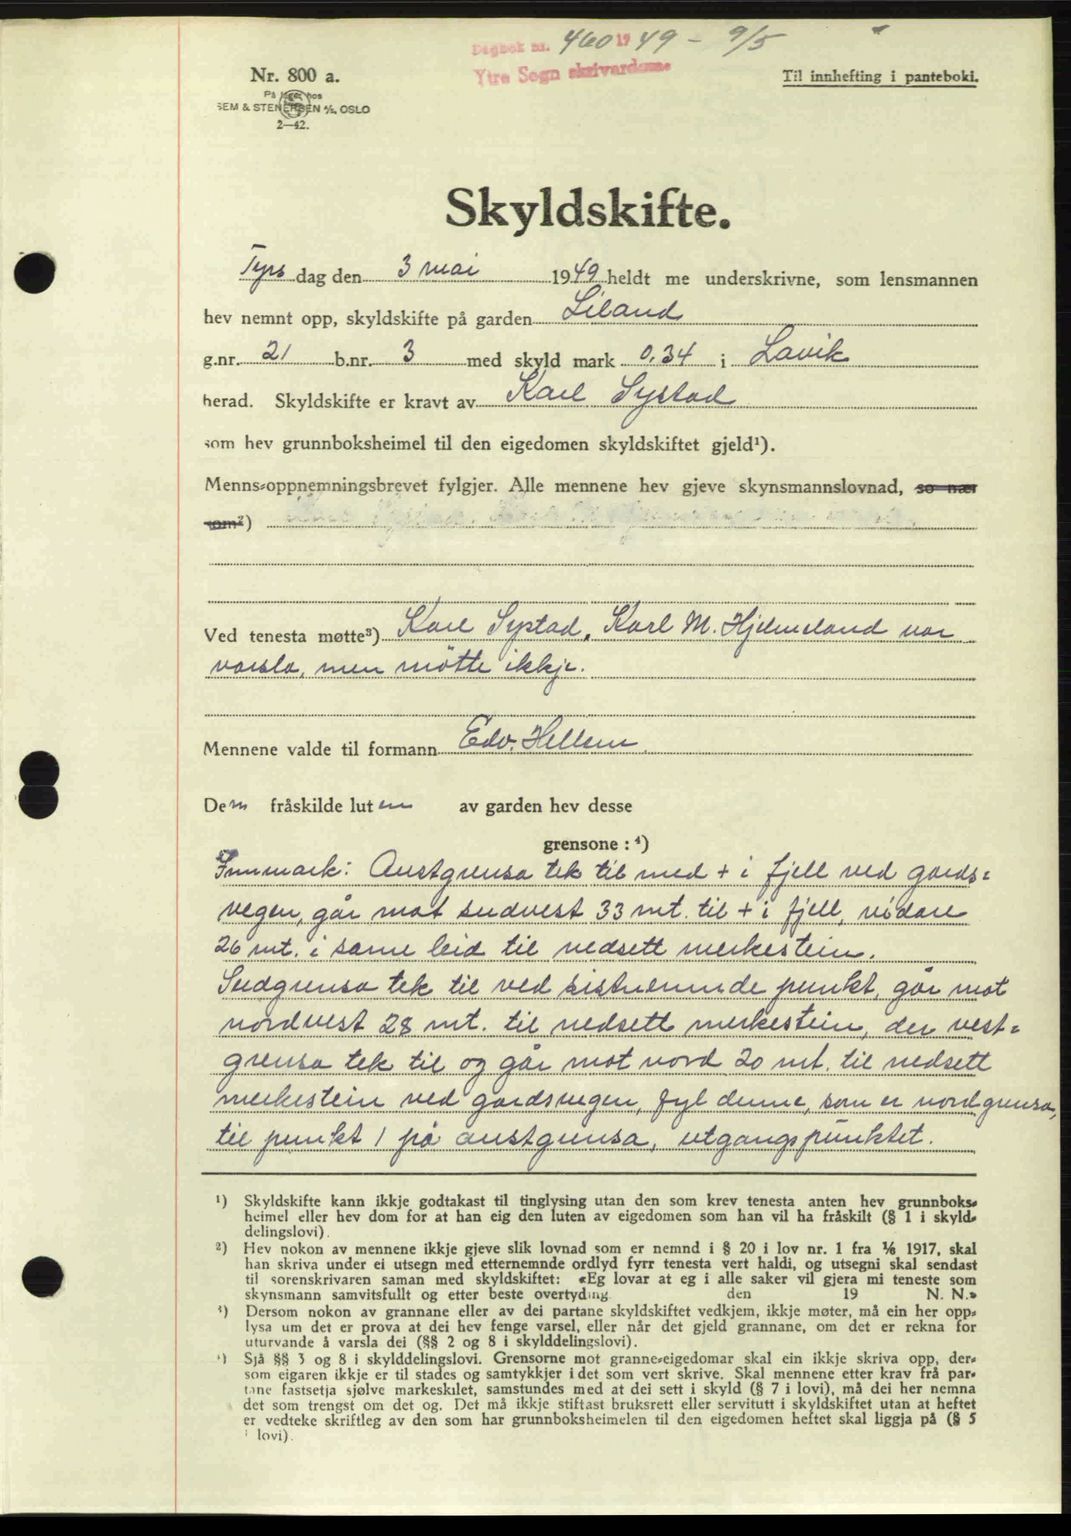 Dagbok nr. 460 1949 - 9/5
Ytre Sogn skrivardøme
Nr. 800 a.
Til innhefting i panteboki.
På lager hos
SEM & STENERSEN A/S, OSLO
2—42.
Skyldskifte.
Tyrsdag den 3 mai 1949 heldt me underskrivne, som lensmannen
hev nemnt opp, skyldskifte på garden Liland
g.nr. 21 b.nr. 3 med skyld mark 0,34 i Lavik
herad. Skyldskifte er kravt av Karl Systad
som hev grunnboksheimel til den eigedomen skyldskiftet gjeld¹).
Menns-oppnemningsbrevet fylgjer. Alle mennene hev gjeve skynsmannslovnad, so nær
som²)
Ved tenesta møtte³) Karl Systad, Karl M. Hjelmeland var
varsla, men møtte ikkje.
Mennene valde til formann Edv. Hellem
Den fråskilde luten av garden hev desse
grensone : ⁴)
Innmark: Austgrensa tek til med + i fjell ved gards-
vegen, går mot sudvest 33 mt. til + i fjell, vidare
26 mt. i same leid til nedsett merkestein.
Sudgrensa tek til ved sistnemnde punkt, går mot
nordvest 28 mt. til nedsett merkestein, der vest-
grensa tek til og går mot nord 20 mt. til nedsett
merkestein ved gardsvegen, fyl denne, som er nordgrensa,
til punkt 1 på austgrensa, utgangspunktet.
¹) Skyldskifte kann ikkje godtakast til tinglysing utan den som krev tenesta anten hev grunnboks-
heimel eller hev dom for at han eig den luten av eigedomen som han vil ha fråskilt (§ 1 i skyld-
delingslovi).
²) Hev nokon av mennene ikkje gjeve slik lovnad som er nemnd i § 20 i lov nr. 1 fra 1/6 1917, skal
han skriva under ei utsegn med etternemnde ordlyd fyrr tenesta vert haldi, og utsegni skal sendast
til sorenskrivaren saman med skyldskiftet: «Eg lovar at eg i alle saker vil gjera mi teneste som
skynsmann samvitsfullt og etter beste overtyding. den 19 N. N.»
³) Dersom nokon av grannane eller av dei partane skyldskiftet vedkjem, ikkje møter, må ein her opp-
lysa um det er prova at dei hev fenge varsel, eller når det gjeld grannane, om det er rekna for
uturvande å varsla dei (§§ 2 og 8 i skylddelingslovi).
⁴) Sjå §§ 3 og 8 i skylddelingslovi. Grensorne mot granne-eigedomar skal ein ikkje skriva opp, der-
som eigaren ikkje er til stades og samtykkjer i det som vert skrive. Skal mennene etter krav frå par-
tane fastsetja sjølve markeskilet, samstundes med at dei sett i skyld (§ 7 i lovi), må dei her nemna
det som trengst om det og. Det må ikkje stiftast bruksrett eller servitutt i skyldskiftet utan at heftet
er vedteke skriftleg av den som har grunnboksheimelen til den eigedomen heftet skal liggja på (§ 5
i lovi).